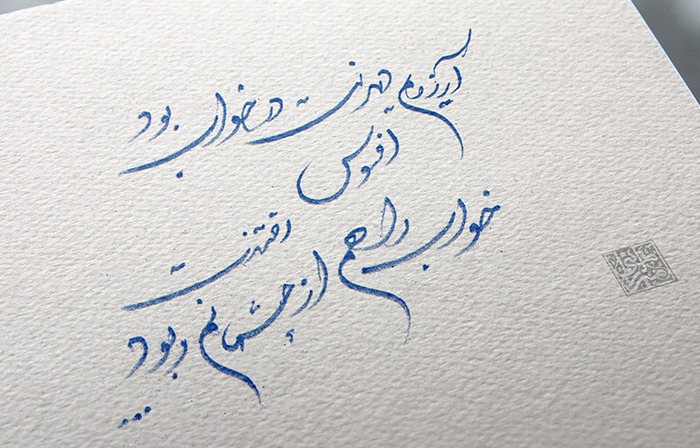 آرزویم دیدنت در خواب بود
افسوس
رفتنت
خواب را هم از چشمانم ربود
...